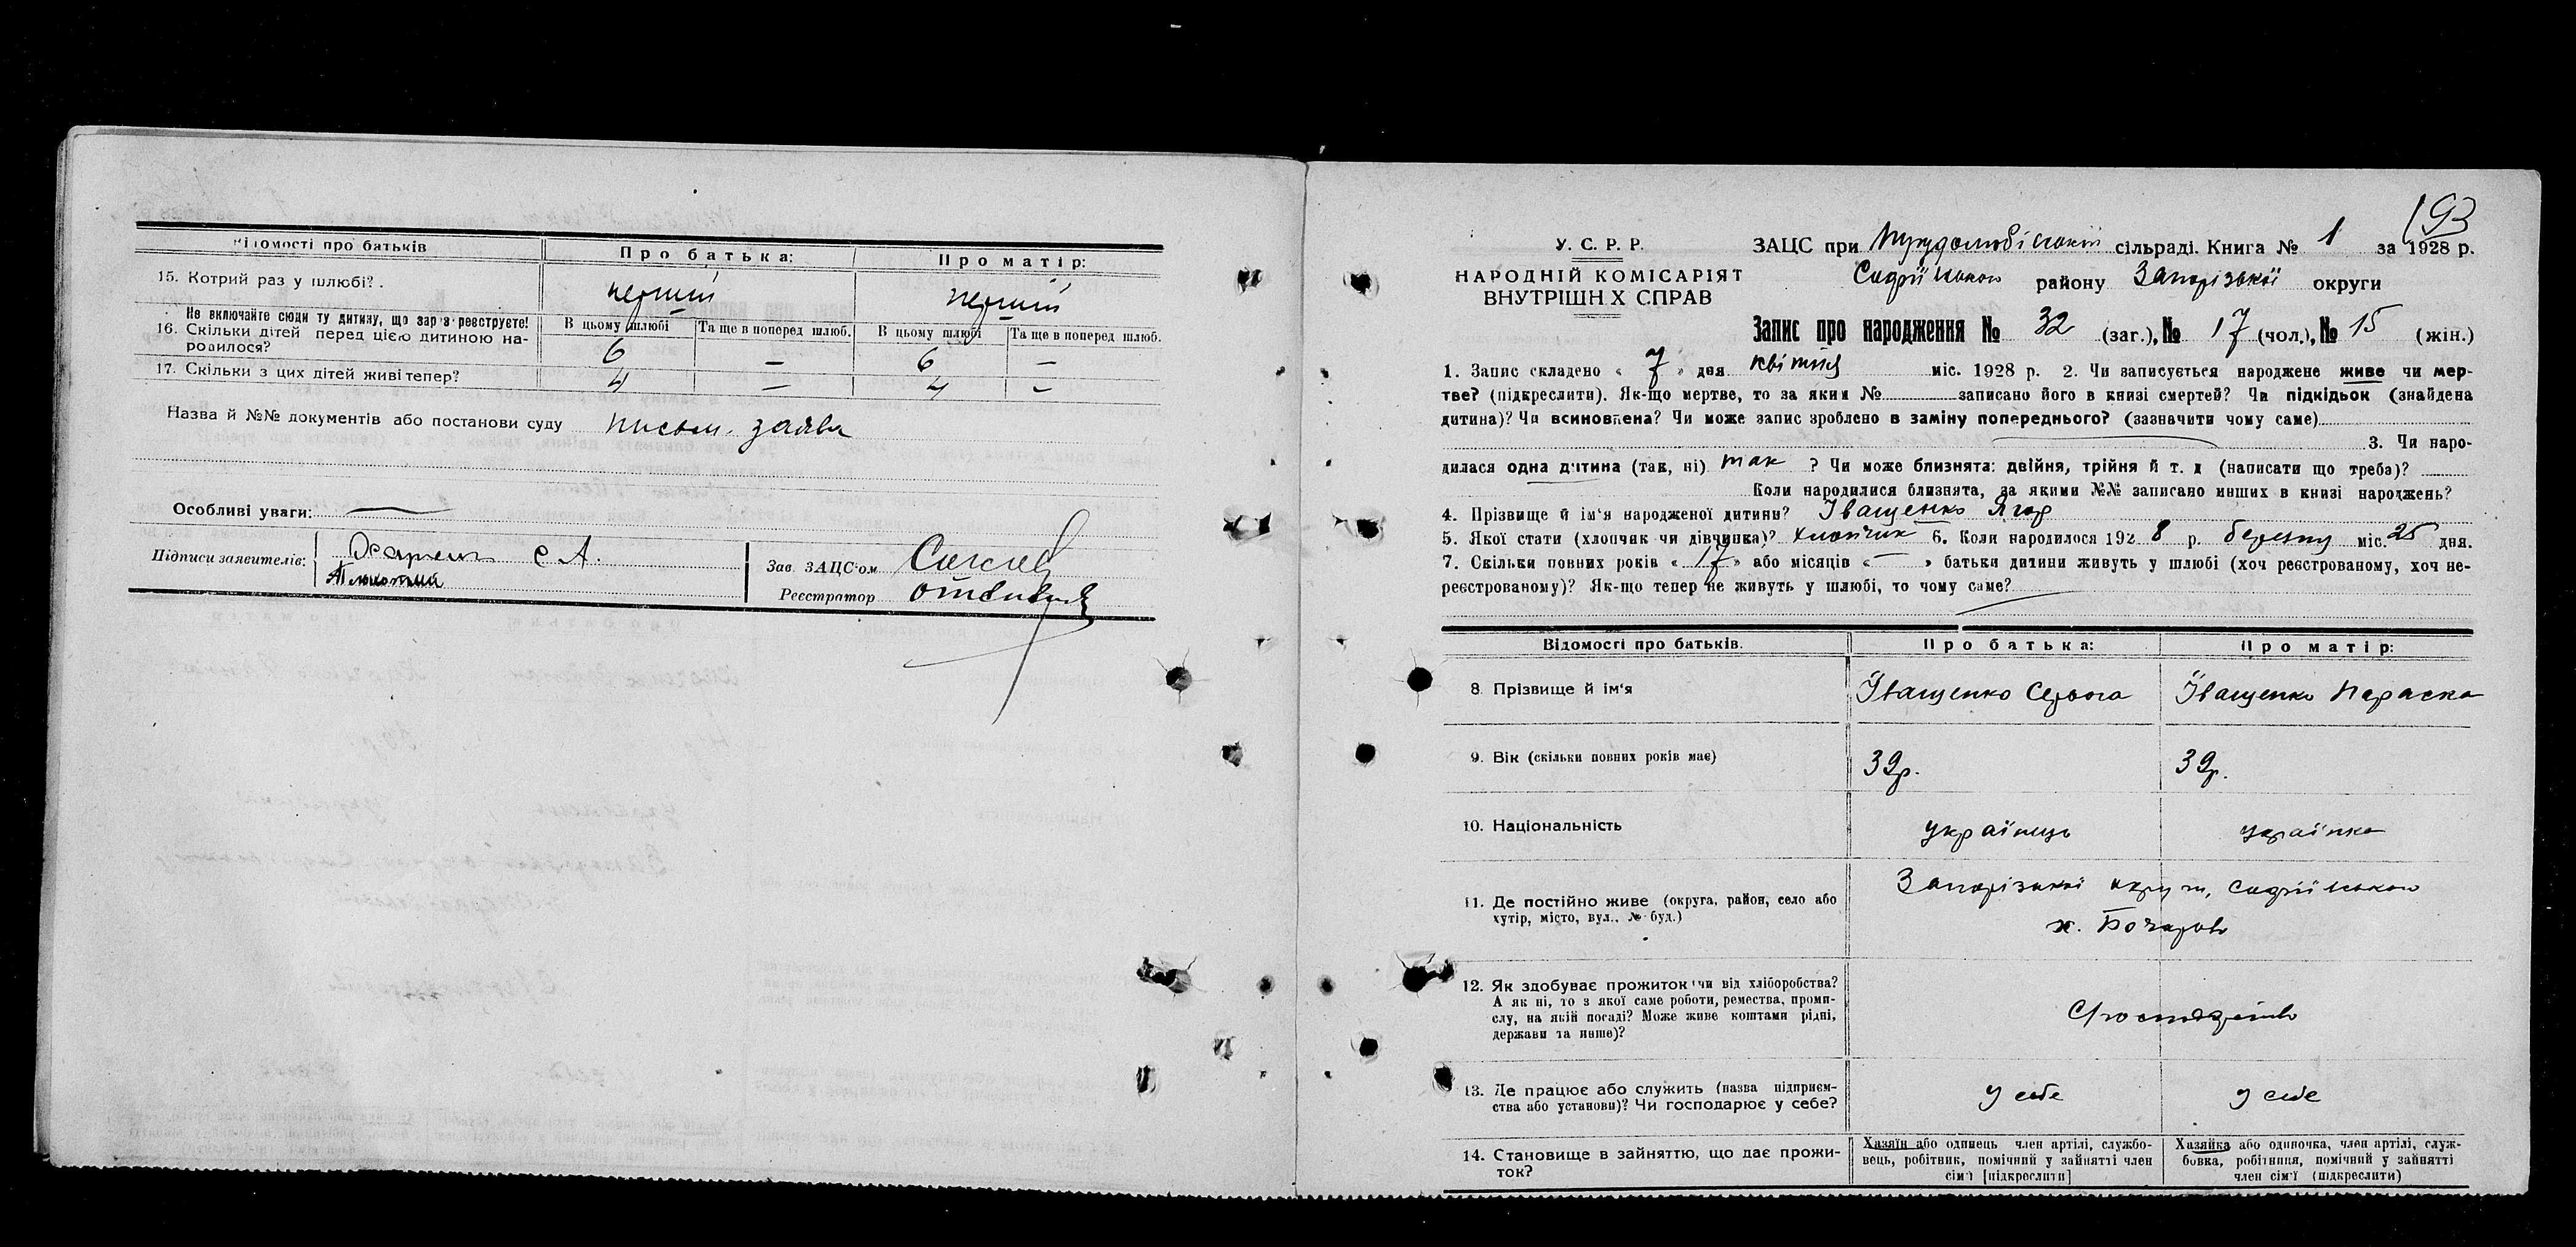 Відомості про батьків
Про батька:
Про матір:
15. Котрий раз у шлюбі?
перший
перший
Не включайте сюди ту дитину, що зараз реєструєте!
16. Скільки дітей перед цією дитиною народилося?
В цьому шлюбі
Та ще в поперед шлюб.
В цьому шлюбі
Та ще в поперед шлюб.
6 — 6 —
17. Скільки з цих дітей живі тепер?
4 — 4 —
Назва й №№ документів або постанови суду письм. заява
Особливі уваги: —
Підписи заявителів:
С А.
Зав. ЗАЦС'ом
Реєстратор
193
У. С. Р. Р.
НАРОДНІЙ КОМІСАРІЯТ
ВНУТРІШН Х СПРАВ
ЗАЦС при сільраді. Книга № 1 за 1928 р.
району Запорізької округи
Запис про народження № 32 (заг.), № 17 (чол.), № 15 (жін.)
1. Запис складено « 7 » дня квітня міс. 1928 р. 2. Чи записується народжене живе чи мер-
тве? (підкреслити). Як-що мертве, то за яким № записано його в книзі смертей? Чи підкідьок (знайдена
дитина)? Чи всиновлена? Чи може запис зроблено в заміну попереднього? (зазначити чому саме)
3. Чи наро-
дилася одна дитина (так, ні) так ? Чи може близнята: двійня, трійня й т. д (написати що треба)?
Коли народилися близнята, за якими №№ записано инших в книзі народжень?
4. Прізвище й ім'я народженої дитини? Іващенко Ягор
5. Якої стати (хлопчик чи дівчинка)? хлопчик 6. Коли народилося 192 8 р. березня міс. 25 дня.
7. Скільки повних років « 17 » або місяців « — » батьки дитини живуть у шлюбі (хоч реєстрованому, хоч не-
реєстрованому)? Як-що тепер не живуть у шлюбі, то чому саме?
Відомості про батьків.
Про батька:
Про матір:
8. Прізвище й ім'я
Іващенко Серьога
Іващенко Параска
9. Вік (скільки повних років має)
39р.
39р.
10. Національність
українець
українка
11. Де постійно живе (округа, район, село або
хутір, місто, вул., № буд.)
Запорізької округи,
х. Бочарово
12. Як здобуває прожиток чи від хліборобства?
А як ні, то з якої саме роботи, ремества, проми-
слу, на якій посаді? Може живе коштами рідні,
держави та инше)?
13. Де працює або служить (назва підприєм-
ства або установи)? Чи господарює у себе?
у себе
у себе
14. Становище в зайняттю, що дає прожи-
ток?
Хазяїн або одинець член артілі, службо-
вець, робітник, помічний у зайнятті член
сім'ї [підкреслити]
Хазяйка або одиночка, член артілі, служ-
бовка, робітниця, помічний у зайнятті
член сім'ї (підкреслити)